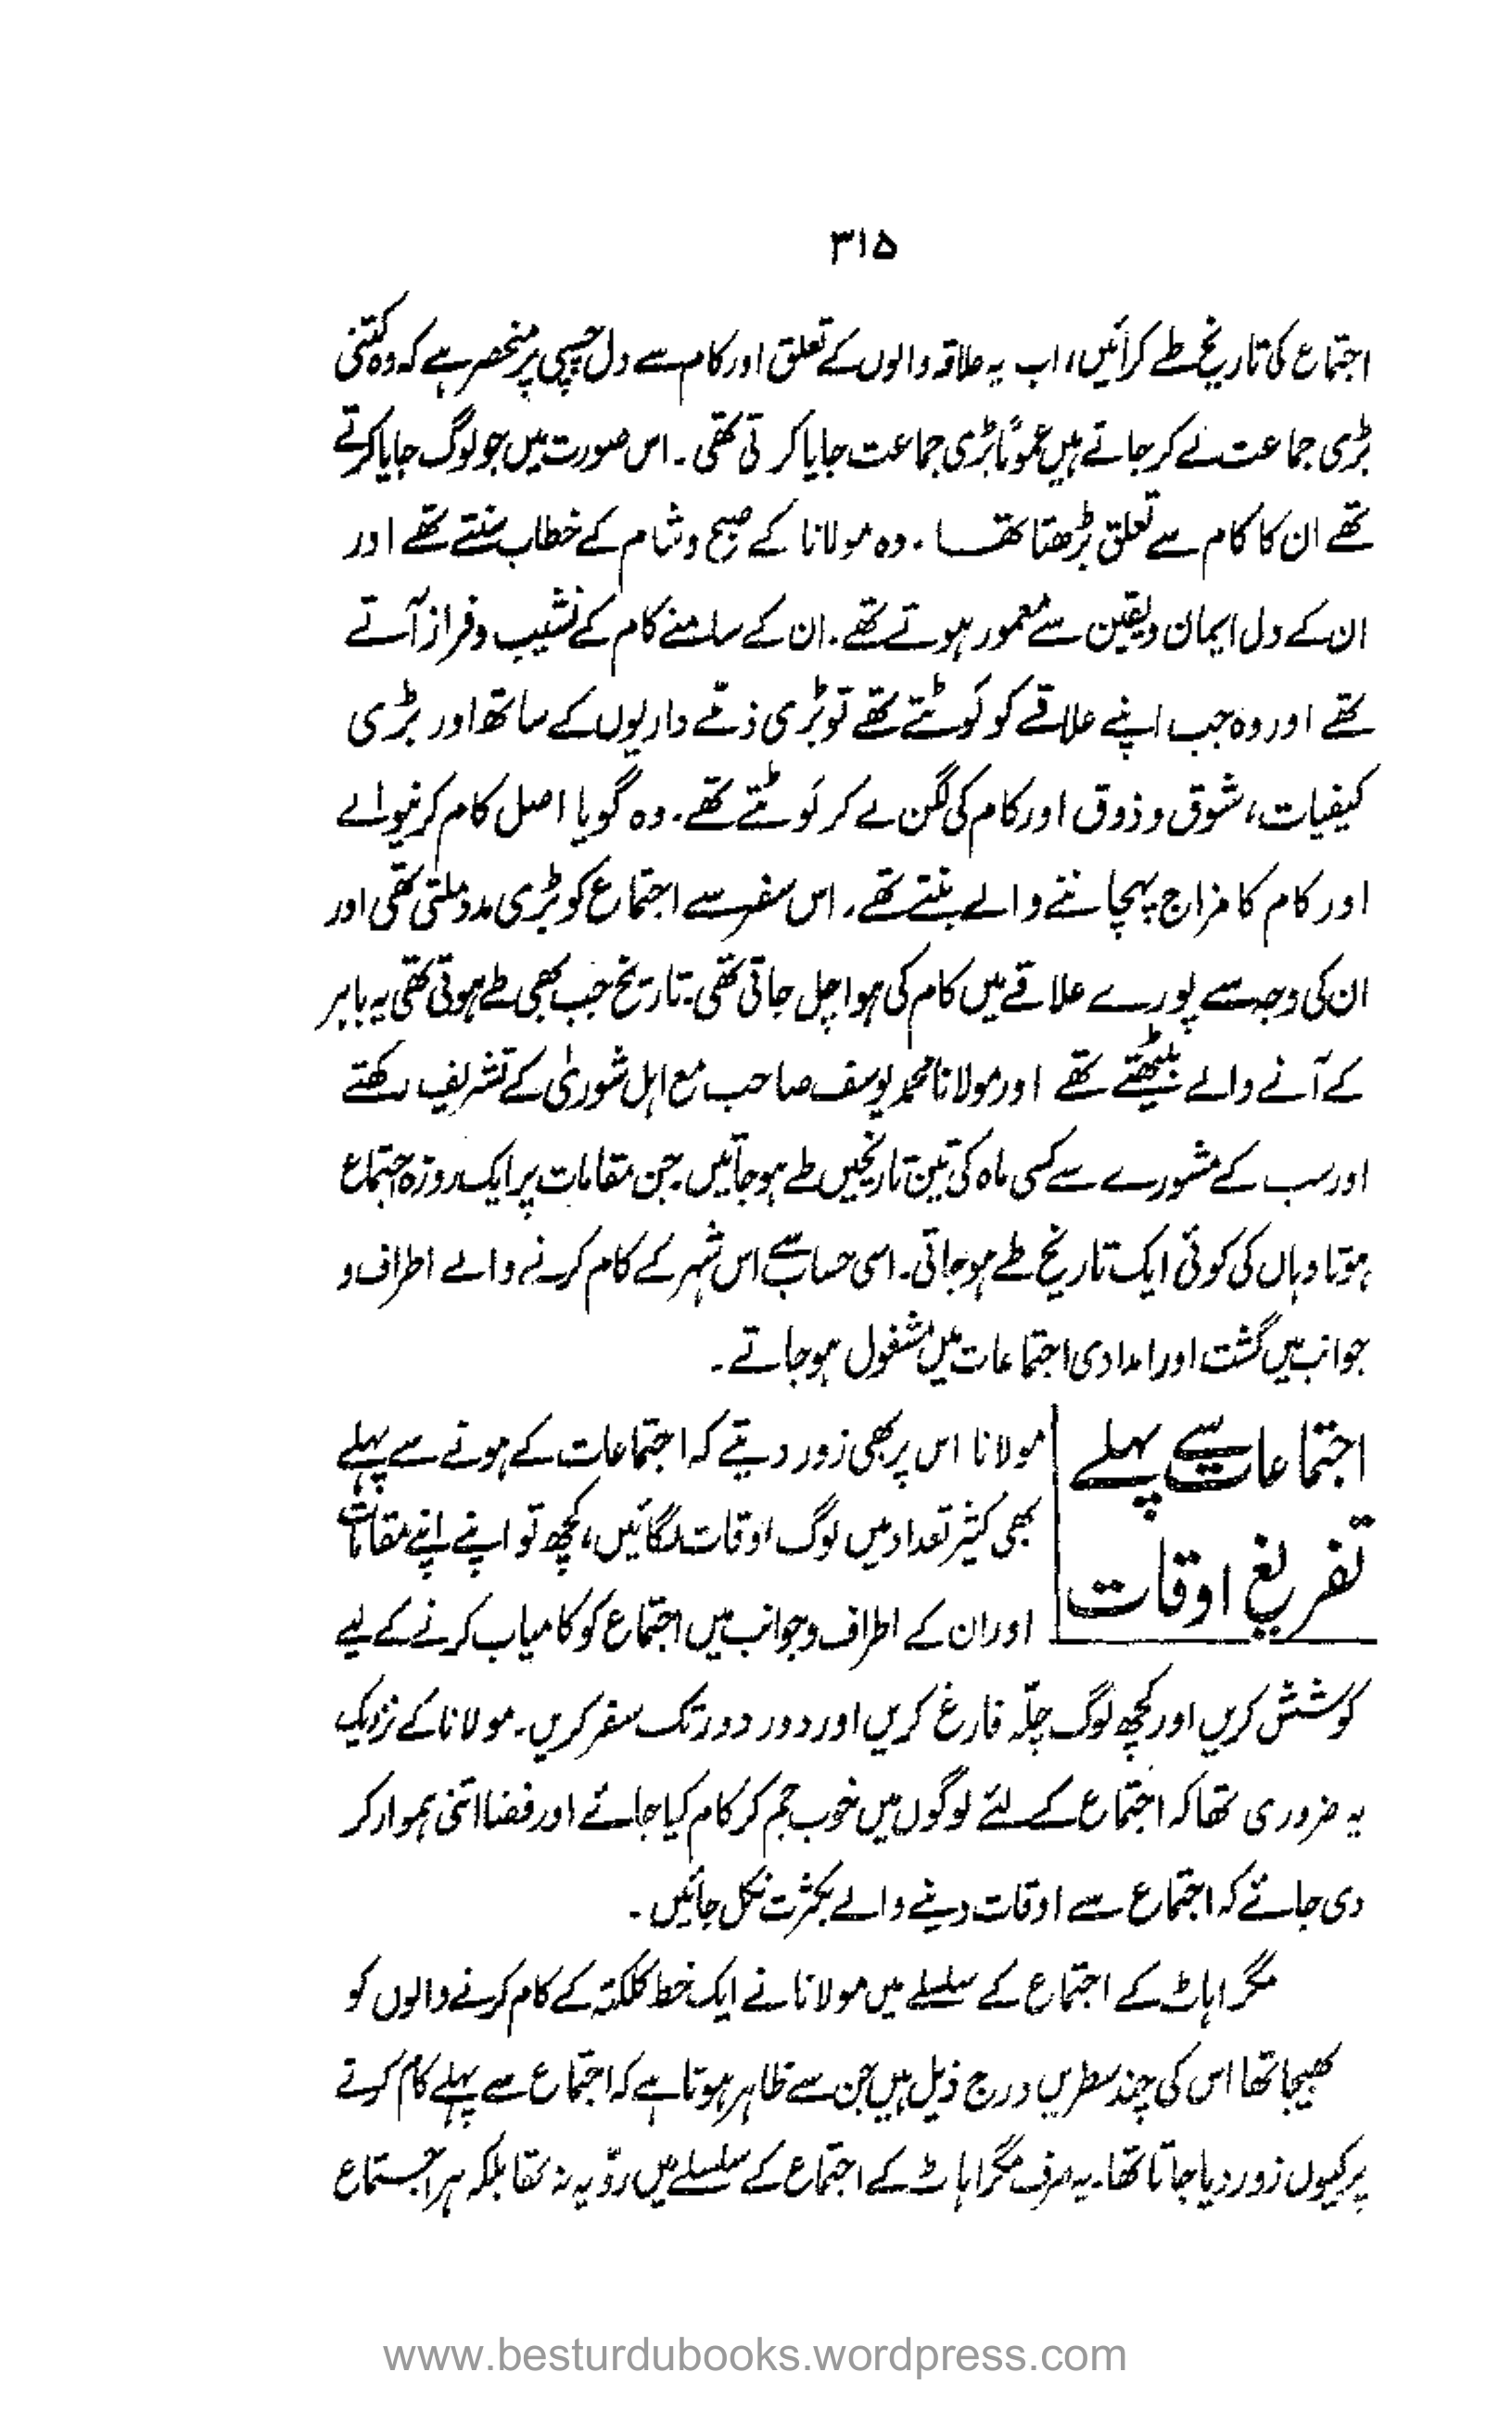 ۳۱۵
اجتماع کی تاریخ طے کرائیں، اب یہ علاقہ والوں کے تعلق اور کام سے دل چسپی پر منحصر ہے کہ وہ کتنی
بڑی جماعت لے کر جاتے ہیں عموماً بڑی جماعت جایا کرتی تھی۔ اس صورت میں جو لوگ جایا کرتے
تھے ان کا کام سے تعلق بڑھتا تھا۔ وہ مولانا کے صبح و شام کے خطاب سنتے تھے اور
ان کے دل ایمان و یقین سے معمور ہوتے تھے۔ ان کے سامنے کام کے نشیب و فراز آتے
تھے اور وہ جب اپنے علاقے کو لَوٹتے تھے تو بڑی ذمّے داریوں کے ساتھ اور بڑی
کیفیات، شوق و ذوق اور کام کی لگن لے کر لَوٹتے تھے۔ وہ گویا اصل کام کرنیوالے
اور کام کا مزاج پہچاننے والے بنتے تھے۔ اس سفر سے اجتماع کو بڑی مدد ملتی تھی اور
ان کی وجہ سے پورے علاقے میں کام کی ہوا چل جاتی تھی۔ تاریخ جب بھی طے ہوتی تھی یہ باہر
کے آنے والے بیٹھتے تھے اور مولانا محمد یوسف صاحب مع اہل شوریٰ کے تشریف رکھتے
اور سب کے مشورے سے کسی ماہ کی تین تاریخیں طے ہو جاتیں۔ جن مقامات پر ایک روزہ اجتماع
ہوتا وہاں کی کوئی ایک تاریخ طے ہو جاتی۔ اسی حساب سے اس شہر کے کام کرنے والے اطراف و
جوانب میں گشت اور امدادی اجتماعات میں مشغول ہو جاتے۔
اجتماعات سے پہلے
تفریغ اوقات
مولانا اس پر بھی زور دیتے کہ اجتماعات کے ہونے سے پہلے
بھی کثیر تعداد میں لوگ اوقات لگائیں، کچھ تو اپنے اپنے مقامات
اور ان کے اطراف و جوانب میں اجتماع کو کامیاب کرنے کے لیے
کوشش کریں اور کچھ لوگ چلّہ فارغ کریں اور دور دور تک سفر کریں۔ مولانا کے نزدیک
یہ ضروری تھا کہ اجتماع کے لئے لوگوں میں خوب جم کر کام کیا جائے اور فضا اتنی ہموار کر
دی جائے کہ اجتماع سے اوقات دینے والے بکثرت نکل جائیں۔
مگراہاٹ کے اجتماع کے سلسلے میں مولانا نے ایک خط کلکتہ کے کام کرنے والوں کو
بھیجا تھا اس کی چند سطریں درج ذیل ہیں جن سے ظاہر ہوتا ہے کہ اجتماع سے پہلے کام کرنے
پر کیوں زور دیا جاتا تھا۔ یہ صرف مگراہاٹ کے اجتماع کے سلسلے میں رویّہ نہ تھا بلکہ ہر اجتماع
www.besturdubooks.wordpress.com